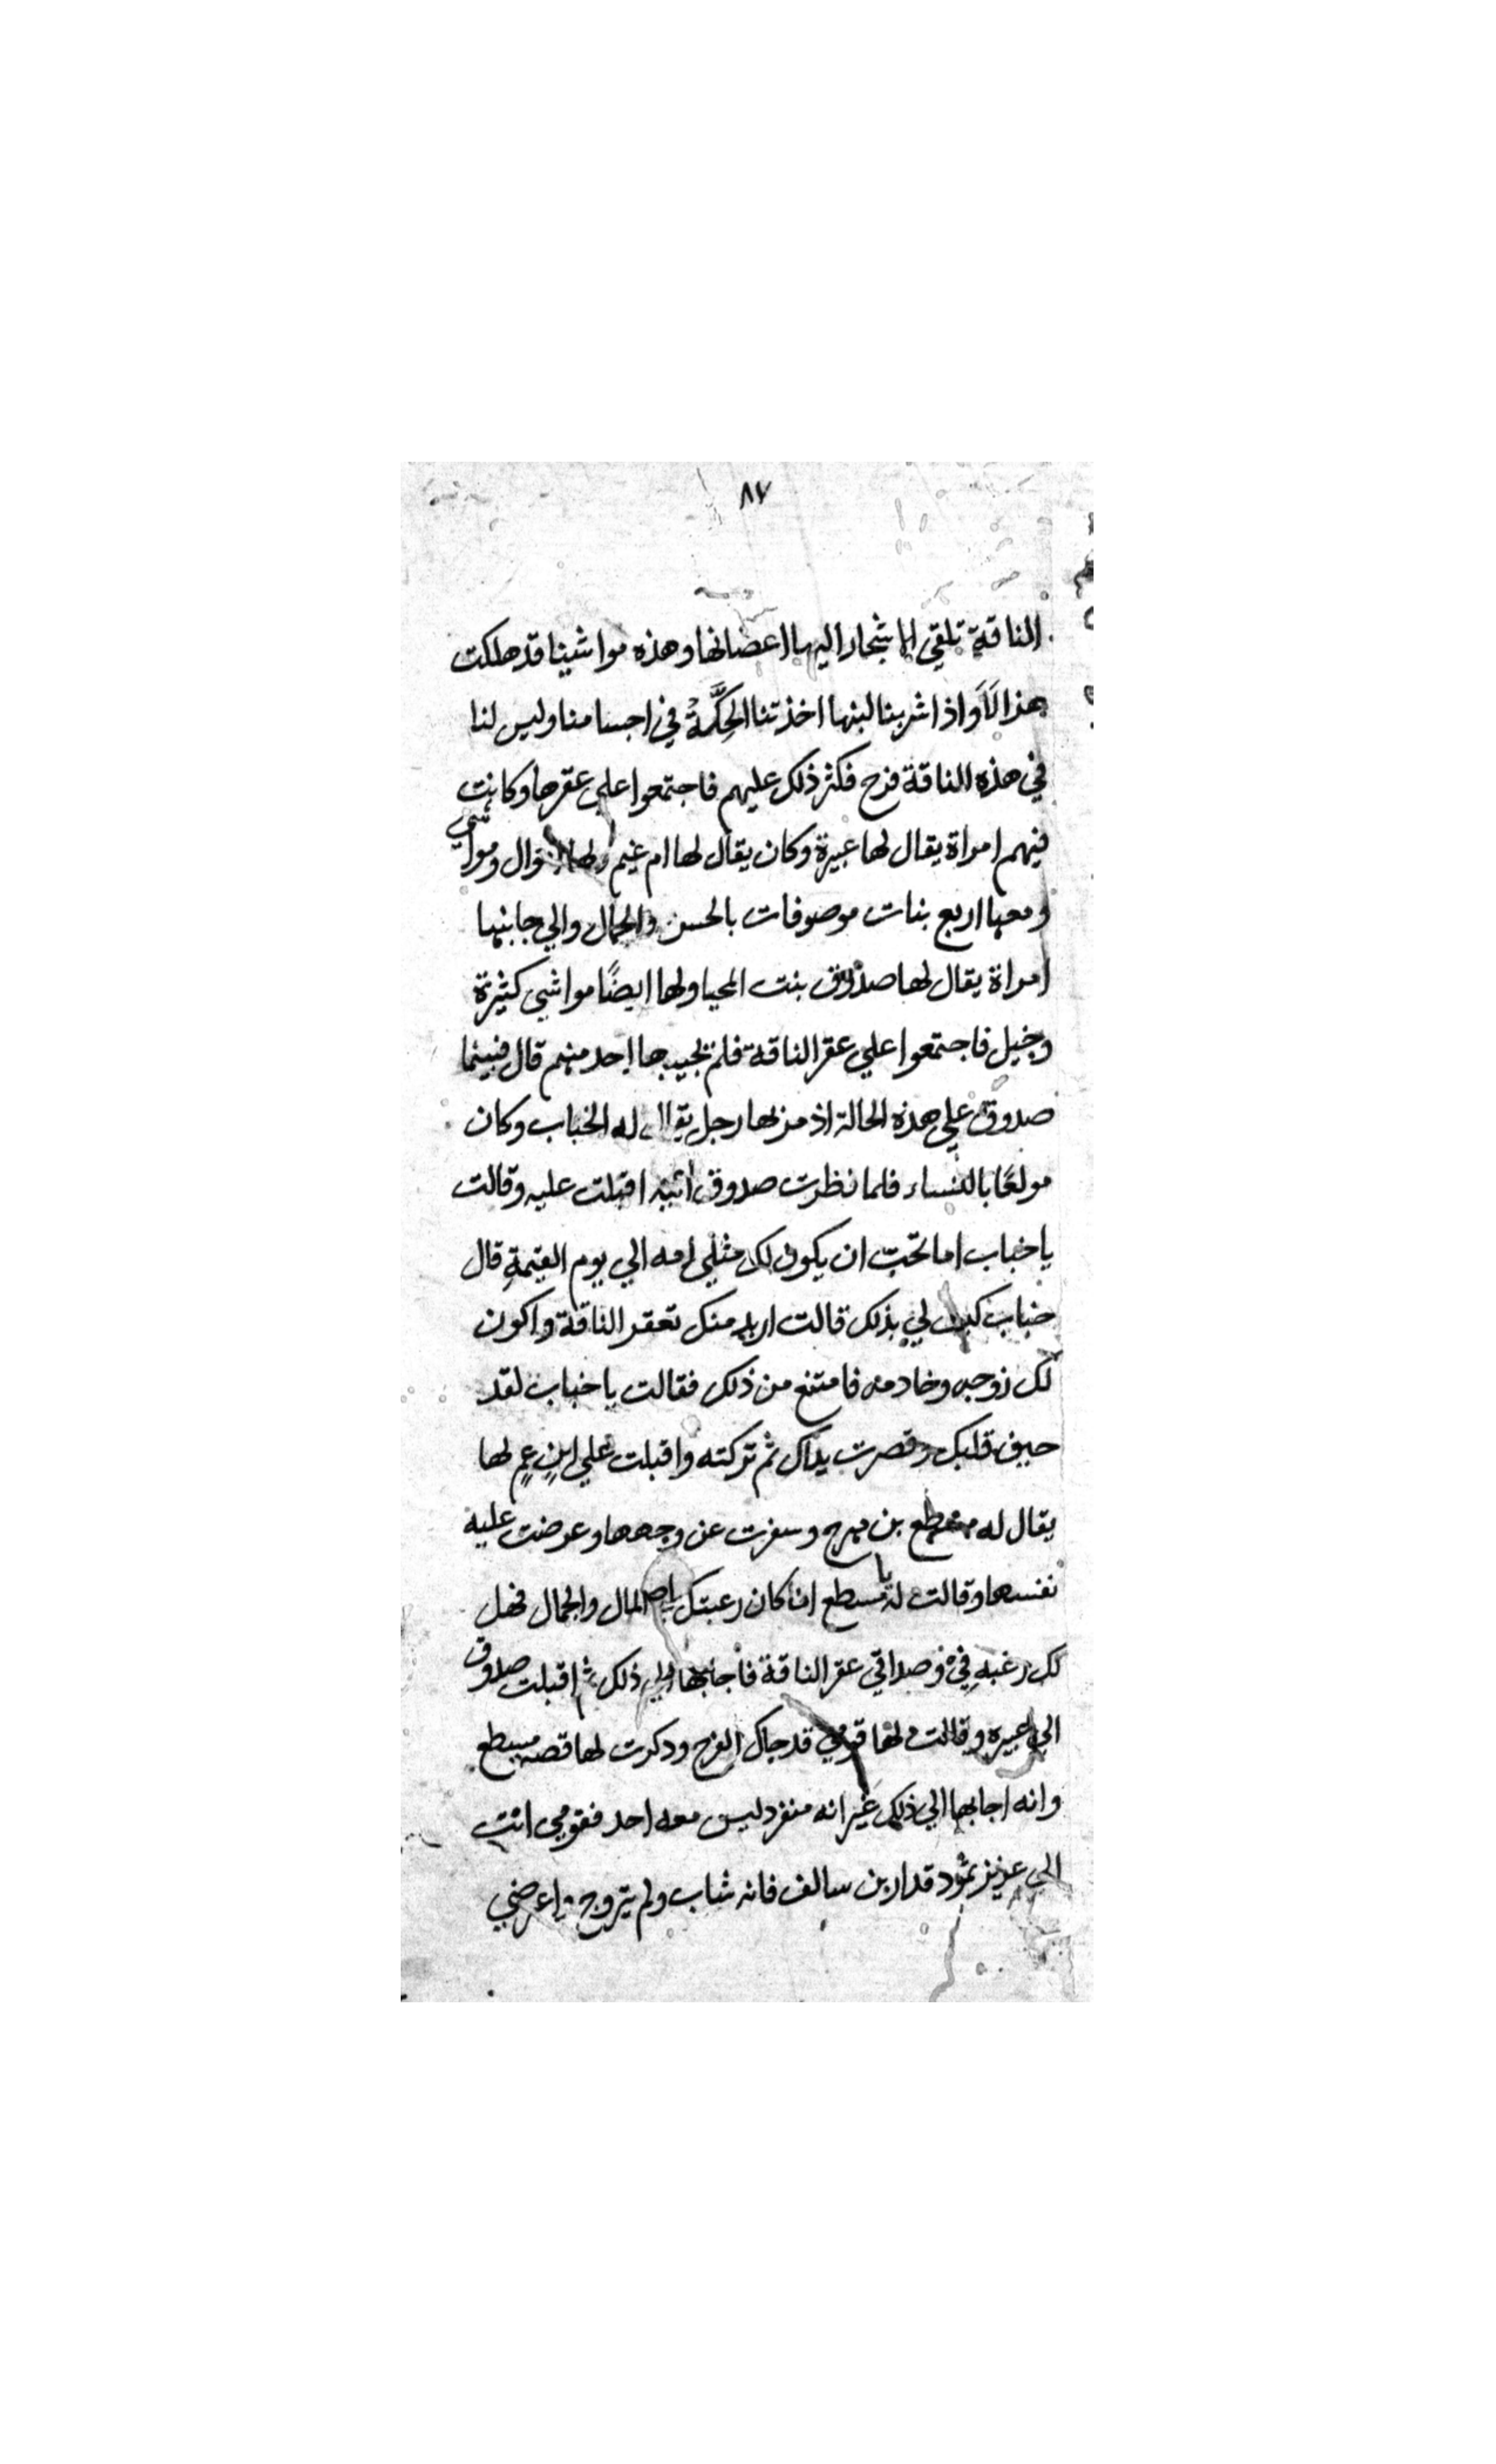 ٨٧
الناقة تلقي الاشجار اليها اعضانها وهذه مواشينا قد هلكت
هذالاً واذا شربنا لبنها اخذتنا الحكَّة في اجسامنا وليس لنا
في هذه الناقة فرح فكثر ذلك عليهم فاجتمعوا علي عقرها وكانت
فيهم امراة يقال لها عبيرة وكان يقال لها ام غيم ولها اموال ومواشي
ومعها اربع بنات موصوفات بالحسن والجمال والي جانبها
امراة يقال لها صدوق بنت المحيا ولها ايضًا مواشي كثيرة
وخيل فاجتمعوا علي عقر الناقة فلم يجيبها احد منهم قال فبينما
صدوق علي هذه الحالة اذ مر بها رجل يقال له الخباب وكان
مولعًا بالنساء فلما نظرت صدوق اليه اقبلت عليه وقالت
يا خباب اما تحب ان يكون لك مثلي امه الي يوم القيمة قال
خباب كيف لي بذلك قالت اريد منك تعقر الناقة واكون
لك زوجه وخادمه فامتنع من ذلك فقالت يا خباب لقد
قلبك وقصرت يداك ثم تركته واقبلت علي ابن عم لها
يقال له مسطع بن مهرج وسفرت عن وجهها وعرضت عليه
نفسها وقالت له يا مسطع ان كان رعبتك المال والجمال فهل
لك رغبه في وصداقي عقر الناقة فاجابها الي ذلك ثم اقبلت صدوق
الي عبيره وقالت لها قومي قد جاك الفرج ودكرت لها قصه مسطع
وانه اجابها الي ذلك غير انه منفرد ليس معه احد فقومي انت
الي عزيز ثمود قدار بن سالف فانه شاب ولم يتزوج واعرضي